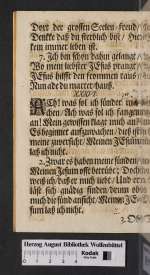 Dort der grossen Seelen-freud/
Denke daß du sterblich bist/
kein immer leben ist.
7. Ich bin schon dahin gelangt/
Wo mein liebster JEsus
JEsus hilfft den frommen
Nun ade du matter
XXXIV.
Ach! was sol ich sünder
chen/ Ach was sol ich
an! Mein gewissen klagt mich an/
Es beginnet aufzuwachen/ diß ist
meine zuversicht/ Meinen JEsum
laß ich nicht.
2. Zwar es haben meine sünden/
Meinen JEsum offt betrübet/ Doch
weiß ich/ daß er mich liebt/
läst sich gnädig finden/ drum ob
mich die sünd anficht/ Meinen JE-
sum laß ich nicht.
3.
Herzog August Bibliothek Wolfenbüttel